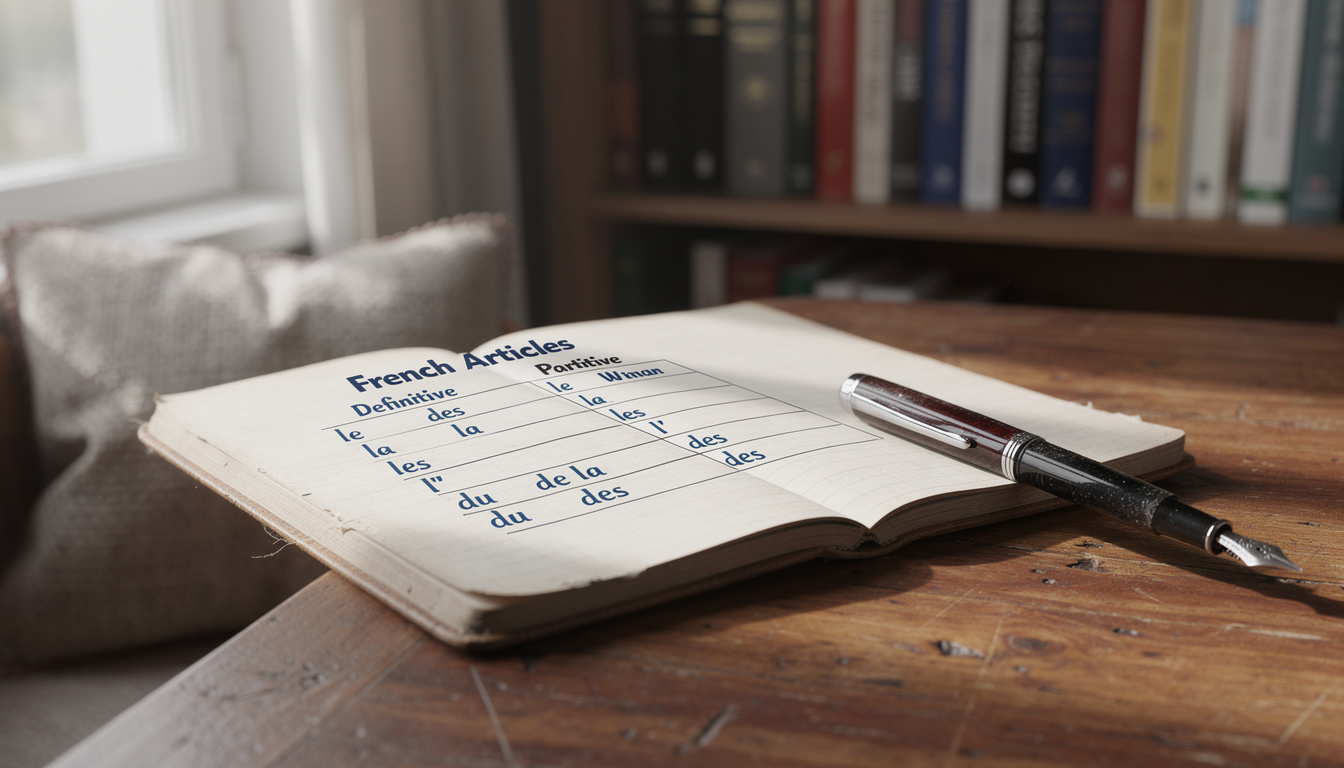 French Articles
Definitive Partitive
le des le Wman
la la la
les les
l" l'
du de la des
du des des